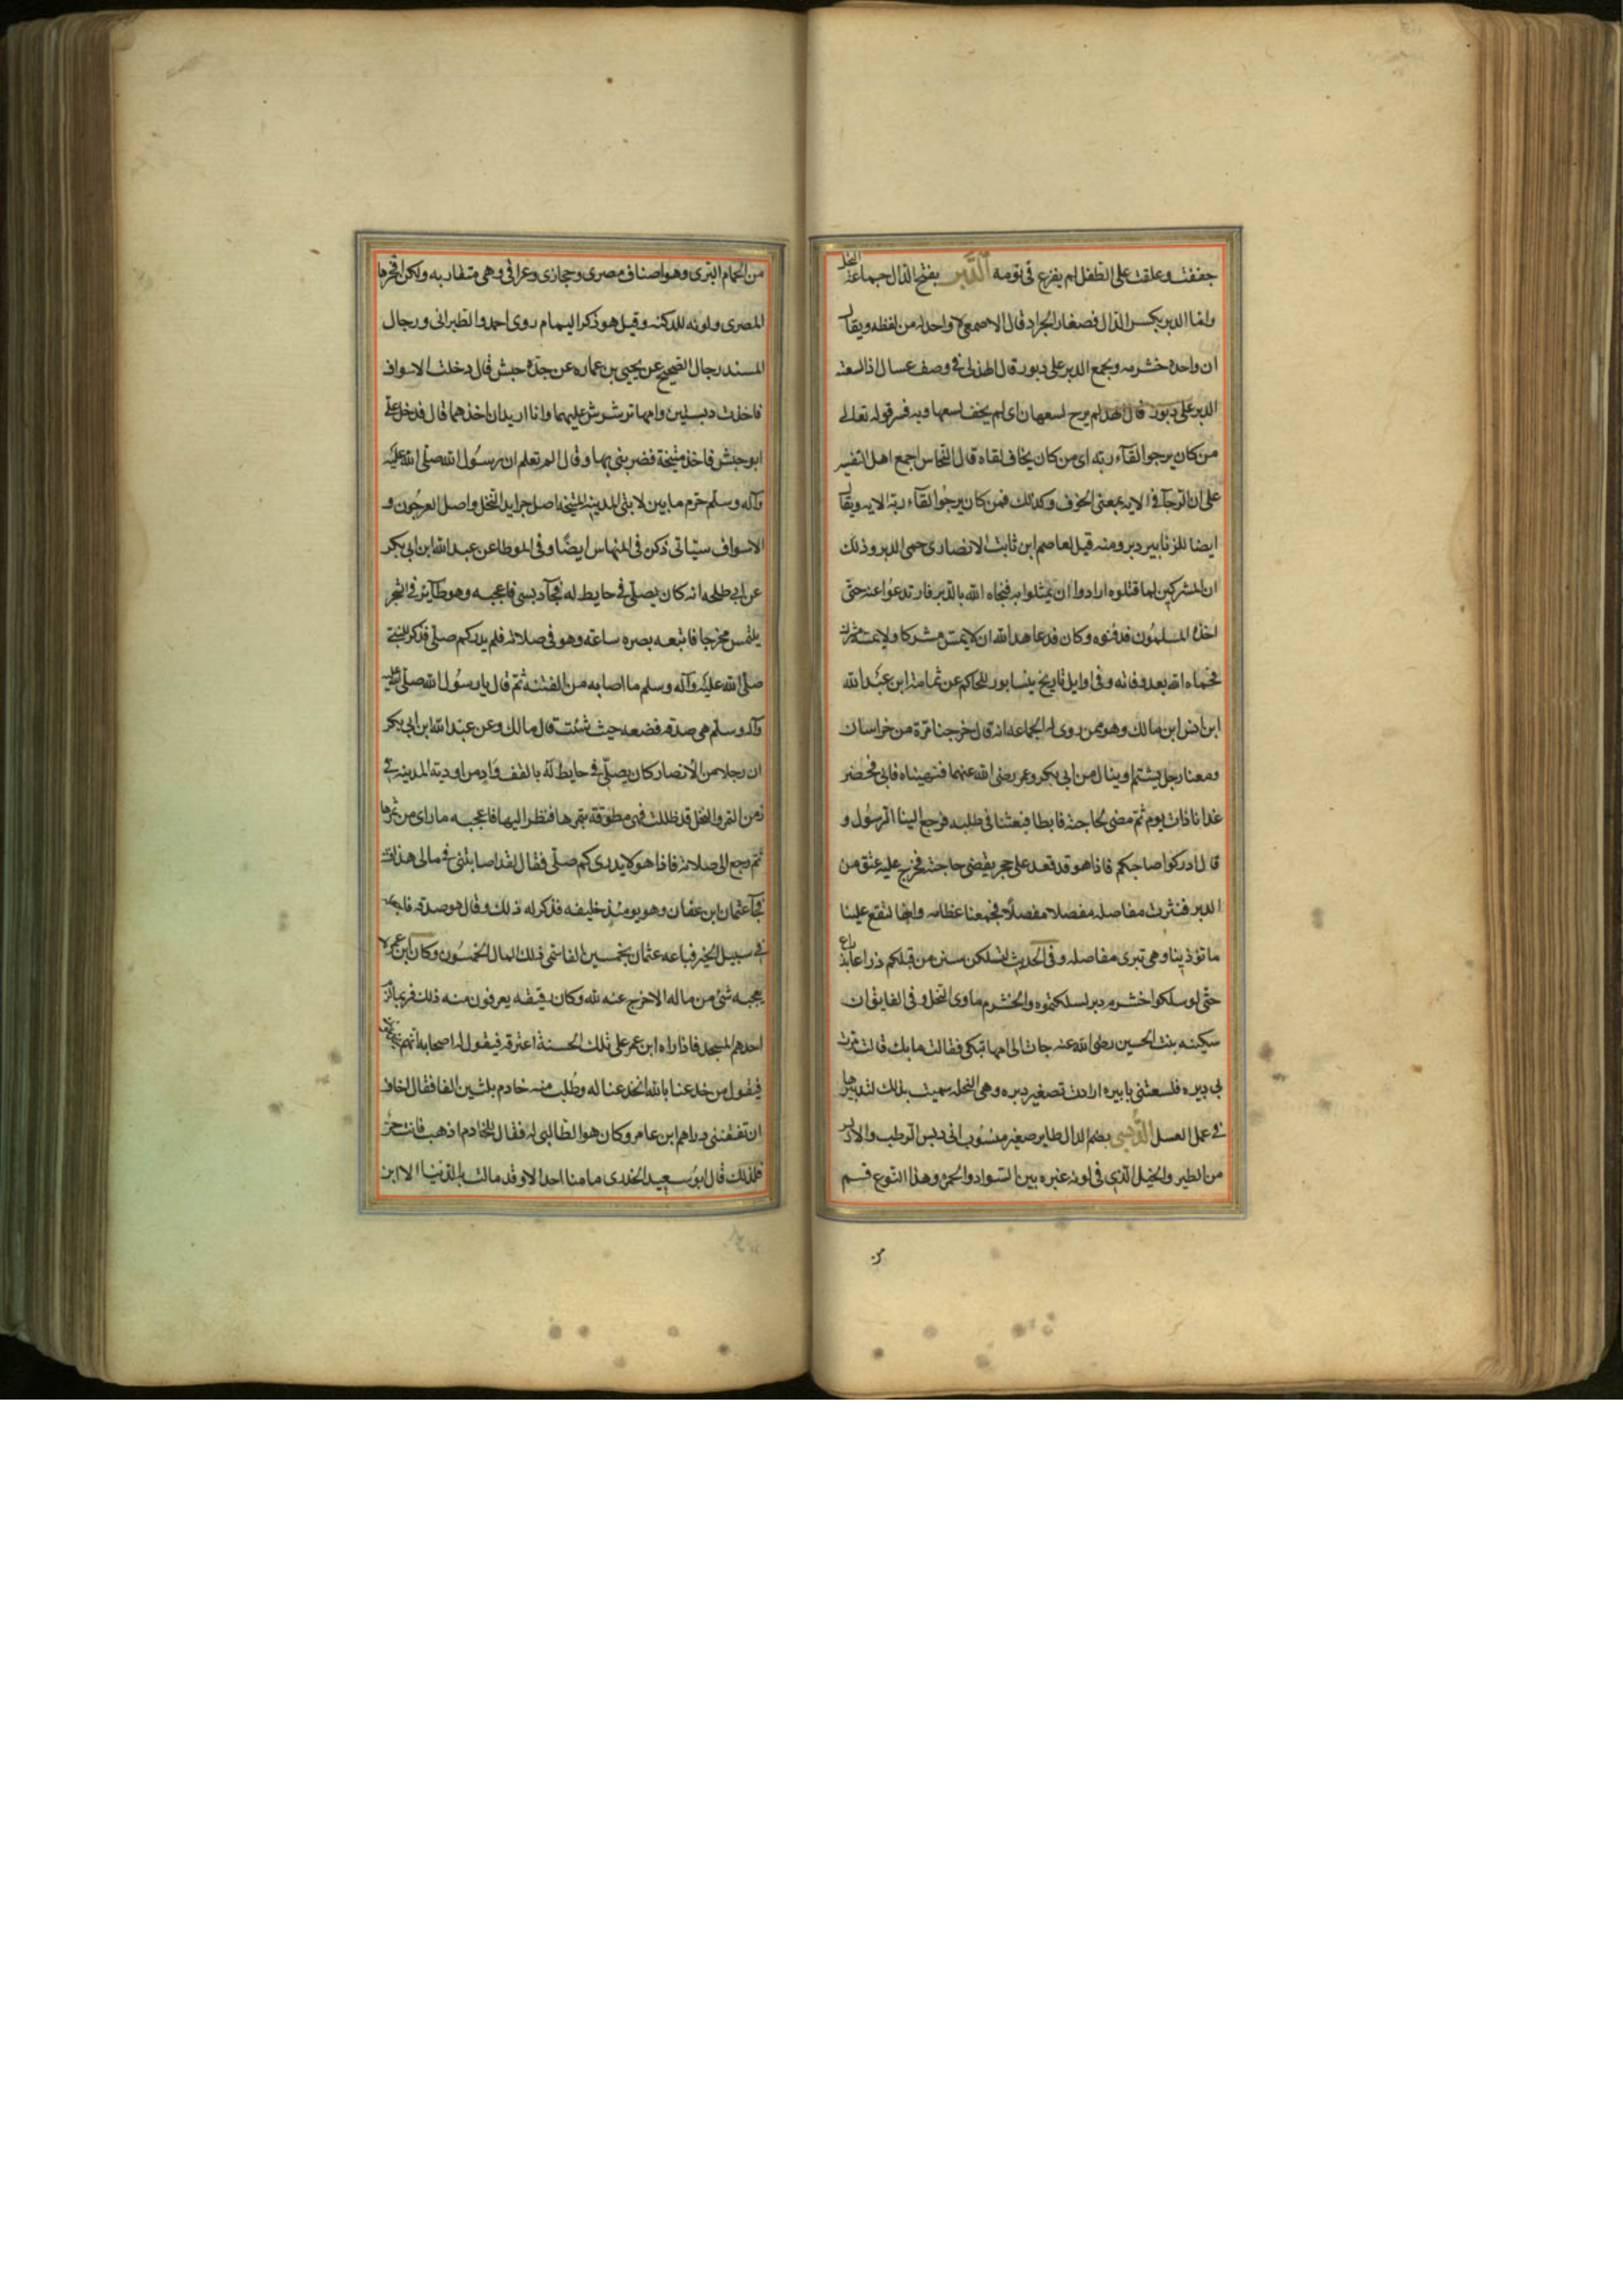 جففت وعلقت على الطفل لم يفزع فى نومه الدَّبر بفتح الدال جماعة النحل
واما الدبر بكسر الدال فصغار الجراد قال الاصمعى لا واحد له من لفظه ويقال
ان واحده خشرمه ويجمع الدبر على دبور قال الهذلى فى وصف عسال اذا لسعته
الدبر على دبور قال الهذ لم يرج لسعها ن اى لم يخف لسعها وبه فسر قوله تعالى
من كان يرجوا لقآء ربه اى من كان يخاف لقاه قال النحاس اجمع اهل التفسير
على ان الرجآ فى الايه بمعنى الخوف وكذلك فمن كان يرجوا لقآء ربه الايه ويقال
ايضا للزنابير دبر ومنه قيل لعاصم ابن ثابت الانصارى حمى الدبر وذلك
ان المشركين لما قتلوه ارادوا ان يمثلوا به فنجاه الله بالدبر فارتدعوا عنه حتى
اخذه المسلمون فدفنوه وكان قد عاهد الله ان لا يمس مشركا ولا يمسه مشرك
فحماه الله بعد وفاته وفى اوايل تاريخ نيسابور للحاكم عن ثمامة ابن عبد الله
ابن انس ابن مالك وهو ممن روى له الجماعه انه قال خرجنا مرة من خراسان
ومعنا رجل يشتم او ينال من ابى بكر وعمر رضى الله عنهما فنهيناه فابى فحضر
غدانا ذات يوم ثم مضى لحاجته فابطا فبعثنا فى طلبه فرجع الينا الرسول و
قال ادركوا صاحبكم فاذا هو قد قعد على حجر يقضى حاجته فخرج عليه عنق من
الدبر فنثرت مفاصله مفصلا مفصلا فجمعنا عظامه وانها لتقع علينا
ما توذينا وهى تبرى مفاصله وفى الحديث لتسلكن سنن من قبلكم ذراعا بذراع
حتى لو سلكوا خشرم دبر لسلكتموه والخشرم ماوى النحل وفى الفايق ان
سكينه بنت الحسين رضى الله عنه جات الى امها تبكى فقالت ما بك قالت مرت
بى دبيره فلسعتنى بابيره ارادت تصغير دبره وهى النحله سميت بذلك لتدبيرها
فى عمل العسل الدبسى بضم الدال طاير صغير منسوب الى دبس الرطب والادبس
من الطير والخيل الذى فى لونه غبره بين السواد والحمرة وهذا النوع قسم
من
من الحمام البرى وهو اصناف مصرى وحجازى وعراقى وهى متقاربه ولكن افخرها
المصرى ولونه للدكنه وقيل هو ذكر اليمام روى احمد والطبرانى ورجال
المسند رجال الصحيح عن يحيى بن عماره عن جده حبش قال دخلت الاسواف
فاخذت دبستين وامهما ترشرش عليهما وانا اريد ان اخذهما قال فدخل على
ابو حبش فاخذ متيخة فضربنى بها وقال الم تعلم ان رسول الله صلى الله عليه
وآله وسلم حرم ما بين لابتى المدينه المتيخه اصل جرايد النخل واصل العرجون و
الاسواف سياتى ذكره فى النهاس ايضًا وفى الموطا عن عبد الله ابن ابى بكر
عن ابى طلحه انه كان يصلى فى حايط له فجآ دبسى فاعجبه وهو طآير فى الشجر
يلتمس مخرجا فاتبعه بصره ساعه وهو فى صلاته فلم يدر كم صلى فذكر للنبى
صلى الله عليه وآله وسلم ما اصابه من الفتنه ثم قال يا رسول الله صلى الله عليه
وآله وسلم هى صدقه فضعه حيث شئت قال مالك وعن عبد الله ابن ابى بكر
ان رجلا من الانصار كان يصلى فى حايط له بالقف واد من اوديه المدينه فى
زمن التمر والنخل قد ظللت فهى مطوقه بثمرها فنظر اليها فاعجبه ما راى من ثمرها
ثم رجع الى صلاته فاذا هو لا يدرى كم صلى فقال لقد اصابتنى فى مالى هذا فتنه
فجآ عثمان ابن عفان وهو يومئذ خليفه فذكر له ذلك وقال هو صدقه فاجعله
فى سبيل الخير فباعه عثمان بخمسين الفا سمى ذلك المال الخمسون وكان ابن عمر لا
يعجبه شئ من ماله الا خرج عنه لله وكان رقيقه يعرفون منه ذلك فربما لزم
احدهم المسجد فاذا راه ابن عمر على تلك الحسنة اعتقه فيقول له اصحابه انهم يخدعونك
فيقول من خدعنا بالله انخدعنا له وطلب منه خادم بثلثين الفا فقال اخاف
ان تفتننى دراهم ابن عامر وكان هو الطالب له فقال للخادم اذهب فانت حر
فلذلك قال ابو سعيد الخدرى ما منا احد الا وقد مالت به الدنيا الا ابن